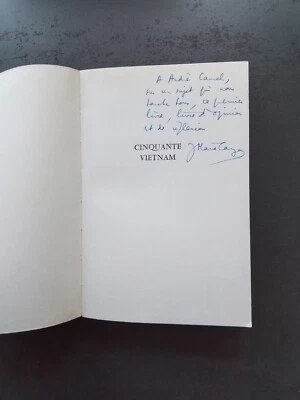 A André Camel,
sur un sujet qui nous
touche tous, ce premier
livre, livre d'opinion
et de réflexion
CINQUANTE
VIETNAM